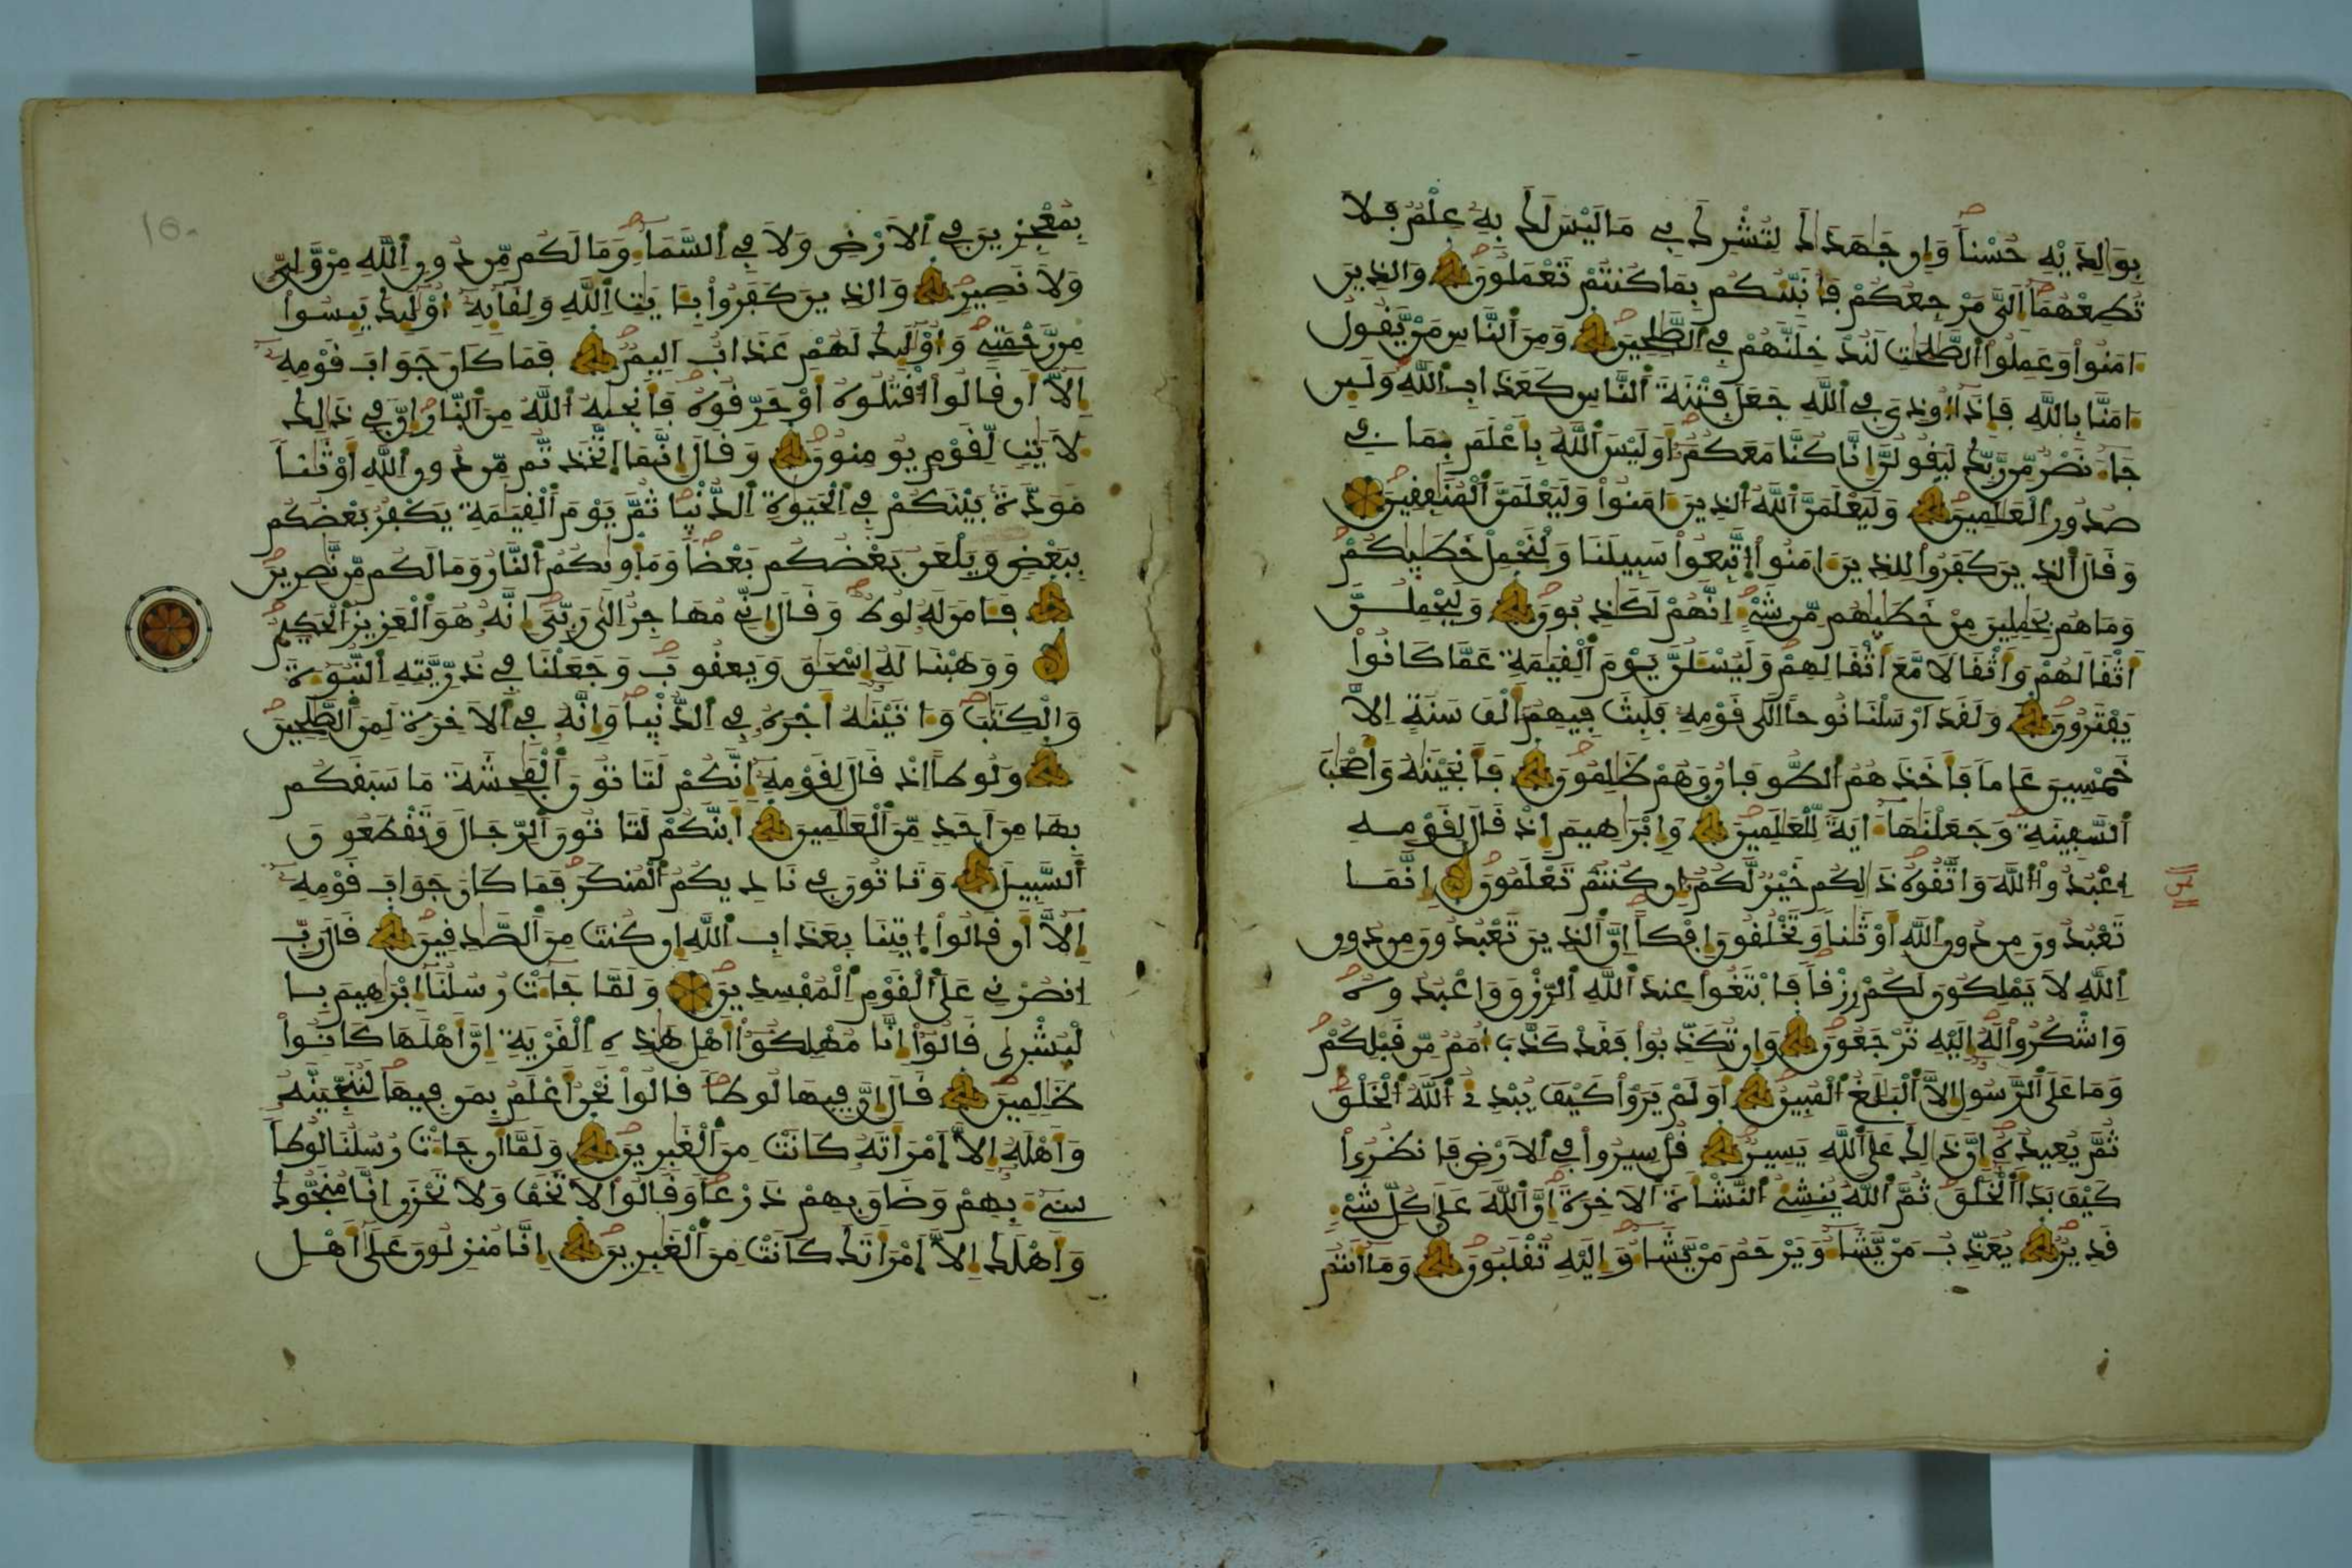 بِوَالِدَيْهِ حُسْناً وَإِن جَٰهَدَاكَ لِتُشْرِكَ بِے مَا لَيْسَ لَكَ بِهِۦ عِلْمٌ فَلَا
تُطِعْهُمَا إِلَيَّ مَرْجِعُكُمْ فَأُنَبِّئُكُم بِمَا كُنتُمْ تَعْمَلُونَ وَالذِينَ
ءَامَنُوا۟ وَعَمِلُوا۟ اُ۬لصَّٰلِحَٰتِ لَنُدْخِلَنَّهُمْ فِے اِ۬لصَّٰلِحِينَ وَمِنَ اَ۬لنَّاسِ مَنْ يَّقُولُ
ءَامَنَّا بِاللَّهِ فَإِذَا أُوذِيَ فِے اِ۬للَّهِ جَعَلَ فِتْنَةَ اَ۬لنَّاسِ كَعَذَابِ اِ۬للَّهِ وَلَئِن
جَاءَ نَصْرٌ مِّن رَّبِّكَ لَيَقُولُنَّ إِنَّا كُنَّا مَعَكُمْ أَوَلَيْسَ اَ۬للَّهُ بِأَعْلَمَ بِمَا فِے
صُدُورِ اِ۬لْعَٰلَمِينَ وَلَيَعْلَمَنَّ اَ۬للَّهُ اُ۬لذِينَ ءَامَنُوا۟ وَلَيَعْلَمَنَّ اَ۬لْمُنَٰفِقِينَ
وَقَالَ اَ۬لذِينَ كَفَرُوا۟ لِلذِينَ ءَامَنُوا۟ اُ۪تَّبِعُوا۟ سَبِيلَنَا وَلْنَحْمِلْ خَطَٰيَٰكُمْ
وَمَا هُم بِحَٰمِلِينَ مِنْ خَطَٰيَٰهُم مِّن شَيْءٍ إِنَّهُمْ لَكَٰذِبُونَ وَلَيَحْمِلُنَّ
أَثْقَالَهُمْ وَأَثْقَالًا مَّعَ أَثْقَالِهِمْ وَلَيُسْـَٔلُنَّ يَوْمَ اَ۬لْقِيَٰمَةِ عَمَّا كَانُوا۟
يَفْتَرُونَ وَلَقَدَ اَرْسَلْنَا نُوحاً إِلَىٰ قَوْمِهِۦ فَلَبِثَ فِيهِمُ أَلْفَ سَنَةٍ إِلَّا
خَمْسِينَ عَاماً فَأَخَذَهُمُ اُ۬لطُّوفَانُ وَهُمْ ظَٰلِمُونَ فَأَنجَيْنَٰهُ وَأَصْحَٰبَ
اَ۬لسَّفِينَةِ وَجَعَلْنَٰهَا ءَايَةً لِّلْعَٰلَمِينَ وَإِبْرَٰهِيمَ إِذْ قَالَ لِقَوْمِهِ
اِ۟عْبُدُوا۟ اُ۬للَّهَ وَاتَّقُوهُ ذَٰلِكُمْ خَيْرٌ لَّكُمُ إِن كُنتُمْ تَعْلَمُونَ إِنَّمَا
تَعْبُدُونَ مِن دُونِ اِ۬للَّهِ أَوْثَٰناً وَتَخْلُقُونَ إِفْكاً إِنَّ اَ۬لذِينَ تَعْبُدُونَ مِن دُونِ
اِ۬للَّهِ لَا يَمْلِكُونَ لَكُمْ رِزْقاً فَابْتَغُوا۟ عِندَ اَ۬للَّهِ اِ۬لرِّزْقَ وَاعْبُدُوهُ
وَاشْكُرُوا۟ لَهُ إِلَيْهِ تُرْجَعُونَ وَإِن تُكَذِّبُوا۟ فَقَدْ كَذَّبَ أُمَمٌ مِّن قَبْلِكُمْ
وَمَا عَلَى اَ۬لرَّسُولِ إِلَّا اَ۬لْبَلَٰغُ اُ۬لْمُبِينُ أَوَلَمْ يَرَوْا۟ كَيْفَ يُبْدِئُ اُ۬للَّهُ اُ۬لْخَلْقَ
ثُمَّ يُعِيدُهُ إِنَّ ذَٰلِكَ عَلَى اَ۬للَّهِ يَسِيرٌ قُلْ سِيرُوا۟ فِے اِ۬لَارْضِ فَانظُرُوا۟
كَيْفَ بَدَأَ اَ۬لْخَلْقَ ثُمَّ اَ۬للَّهُ يُنشِئُ اُ۬لنَّشْأَةَ اَ۬لَاخِرَةَ إِنَّ اَ۬للَّهَ عَلَىٰ كُلِّ شَيْءٍ
قَدِيرٌ يُعَذِّبُ مَنْ يَّشَاءُ وَيَرْحَمُ مَنْ يَّشَاءُ وَإِلَيْهِ تُقْلَبُونَ وَمَا أَنتُم
بِمُعْجِزِينَ فِے اِ۬لَارْضِ وَلَا فِے اِ۬لسَّمَاءِ وَمَا لَكُم مِّن دُونِ اِ۬للَّهِ مِنْ وَّلِيٍّ
وَلَا نَصِيرٍ وَالذِينَ كَفَرُوا۟ بِـَٔايَٰتِ اِ۬للَّهِ وَلِقَائِهِۦ أُو۟لَٰئِكَ يَئِسُوا۟
مِن رَّحْمَتِے وَأُو۟لَٰئِكَ لَهُمْ عَذَابٌ أَلِيمٌ فَمَا كَانَ جَوَابَ قَوْمِهِ
إِلَّا أَن قَالُوا۟ اُ۟قْتُلُوهُ أَوْ حَرِّقُوهُ فَأَنجَىٰهُ اُ۬للَّهُ مِنَ اَ۬لنَّارِ إِنَّ فِے ذَٰلِكَ
لَأٓيَٰتٍ لِّقَوْمٍ يُومِنُونَ وَقَالَ إِنَّمَا اَ۪تَّخَذتُّم مِّن دُونِ اِ۬للَّهِ أَوْثَٰناً
مَوَدَّةً بَيْنَكُمْ فِے اِ۬لْحَيَوٰةِ اِ۬لدُّنْيَا ثُمَّ يَوْمَ اَ۬لْقِيَٰمَةِ يَكْفُرُ بَعْضُكُم
بِبَعْضٍ وَيَلْعَنُ بَعْضُكُم بَعْضاً وَمَأْوَىٰكُمُ اُ۬لنَّارُ وَمَا لَكُم مِّن نَّٰصِرِينَ
فَـَٔامَنَ لَهُۥ لُوطٌ وَقَالَ إِنِّے مُهَاجِرٌ إِلَىٰ رَبِّيَ إِنَّهُۥ هُوَ اَ۬لْعَزِيزُ اُ۬لْحَكِيمُ
وَوَهَبْنَا لَهُۥ إِسْحَٰقَ وَيَعْقُوبَ وَجَعَلْنَا فِے ذُرِّيَّتِهِ اِ۬لنُّبُوءَةَ
وَالْكِتَٰبَ وَءَاتَيْنَٰهُ أَجْرَهُۥ فِے اِ۬لدُّنْيَا وَإِنَّهُۥ فِے اِ۬لَاخِرَةِ لَمِنَ اَ۬لصَّٰلِحِينَ
وَلُوطاً إِذْ قَالَ لِقَوْمِهِ إِنَّكُمْ لَتَاتُونَ اَ۬لْفَٰحِشَةَ مَا سَبَقَكُم
بِهَا مِنَ أَحَدٍ مِّنَ اَ۬لْعَٰلَمِينَ أَئِنَّكُمْ لَتَاتُونَ اَ۬لرِّجَالَ وَتَقْطَعُونَ
اَ۬لسَّبِيلَ وَتَاتُونَ فِے نَادِيكُمُ اُ۬لْمُنكَرَ فَمَا كَانَ جَوَابَ قَوْمِهِ
إِلَّا أَن قَالُوا۟ اُ۪يتِنَا بِعَذَابِ اِ۬للَّهِ إِن كُنتَ مِنَ اَ۬لصَّٰدِقِينَ قَالَ رَبِّ
اِ۟نصُرْنِے عَلَى اَ۬لْقَوْمِ اِ۬لْمُفْسِدِينَ وَلَمَّا جَاءَتْ رُسُلُنَا إِبْرَٰهِيمَ بِا
لْبُشْرَىٰ قَالُوا۟ إِنَّا مُهْلِكُوا۟ أَهْلِ هَٰذِهِ اِ۬لْقَرْيَةِ إِنَّ أَهْلَهَا كَانُوا۟
ظَٰلِمِينَ قَالَ إِنَّ فِيهَا لُوطاً قَالُوا۟ نَحْنُ أَعْلَمُ بِمَن فِيهَا لَنُنَجِّيَنَّهُۥ
وَأَهْلَهُۥ إِلَّا اَ۪مْرَأَتَهُۥ كَانَتْ مِنَ اَ۬لْغَٰبِرِينَ وَلَمَّا أَن جَاءَتْ رُسُلُنَا لُوطاً
سِےءَ بِهِمْ وَضَاقَ بِهِمْ ذَرْعاً وَقَالُوا۟ لَا تَخَفْ وَلَا تَحْزَنِ إِنَّا مُنَجُّوكَ
وَأَهْلَكَ إِلَّا اَ۪مْرَأَتَكَ كَانَتْ مِنَ اَ۬لْغَٰبِرِينَ إِنَّا مُنزِلُونَ عَلَىٰ أَهْلِ